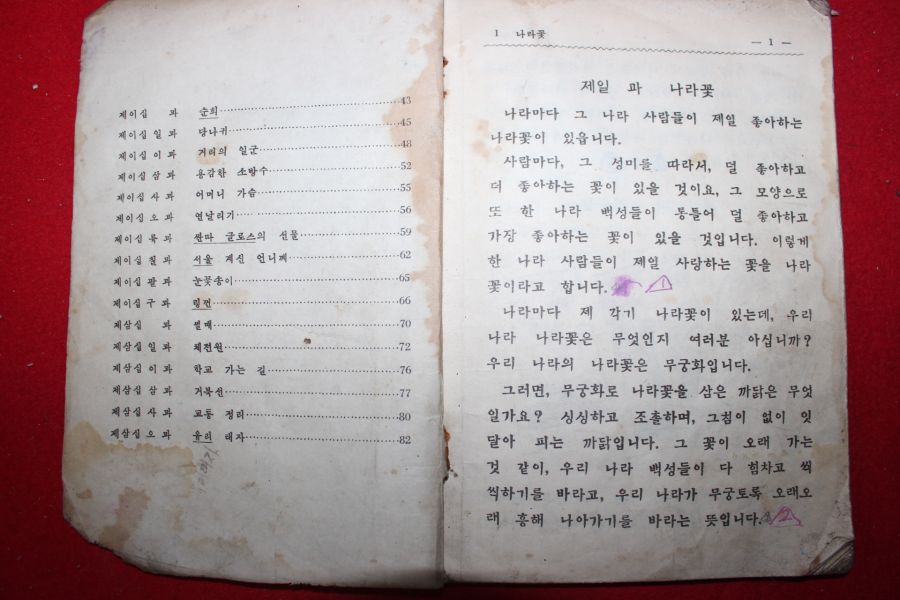 제이십 과 순희 43
제이십일과 당나귀 45
제이십이과 거리의 일군 48
제이십삼과 용감한 소방수 52
제이십사과 어머니 가슴 55
제이십오과 연날리기 56
제이십륙과 싼따 클로스의 선물 59
제이십칠과 서울 계신 언니께 62
제이십팔과 눈꽃송이 65
제이십구과 링컨 66
제삼십 과 썰매 70
제삼십일과 체전원 72
제삼십이과 학교 가는 길 76
제삼십삼과 거북선 77
제삼십사과 교통 정리 80
제삼십오과 유리 태자 82
1 나라꽃 — 1 —
제일 과 나라꽃
나라마다 그 나라 사람들이 제일 좋아하는
나라꽃이 있읍니다.
사람마다, 그 성미를 따라서, 덜 좋아하고
더 좋아하는 꽃이 있을 것이요, 그 모양으로
또 한 나라 백성들이 통틀어 덜 좋아하고
가장 좋아하는 꽃이 있을 것입니다. 이렇게
한 나라 사람들이 제일 사랑하는 꽃을 나라
꽃이라고 합니다. 1
나라마다 제 각기 나라꽃이 있는데, 우리
나라 나라꽃은 무엇인지 여러분 아십니까?
우리 나라의 나라꽃은 무궁화입니다.
그러면, 무궁화로 나라꽃을 삼은 까닭은 무엇
일가요? 싱싱하고 조촐하며, 그침이 없이 잇
달아 피는 까닭입니다. 그 꽃이 오래 가는
것 같이, 우리 나라 백성들이 다 힘차고 씩
씩하기를 바라고, 우리 나라가 무궁토록 오래오
래 흥해 나아가기를 바라는 뜻입니다. 2